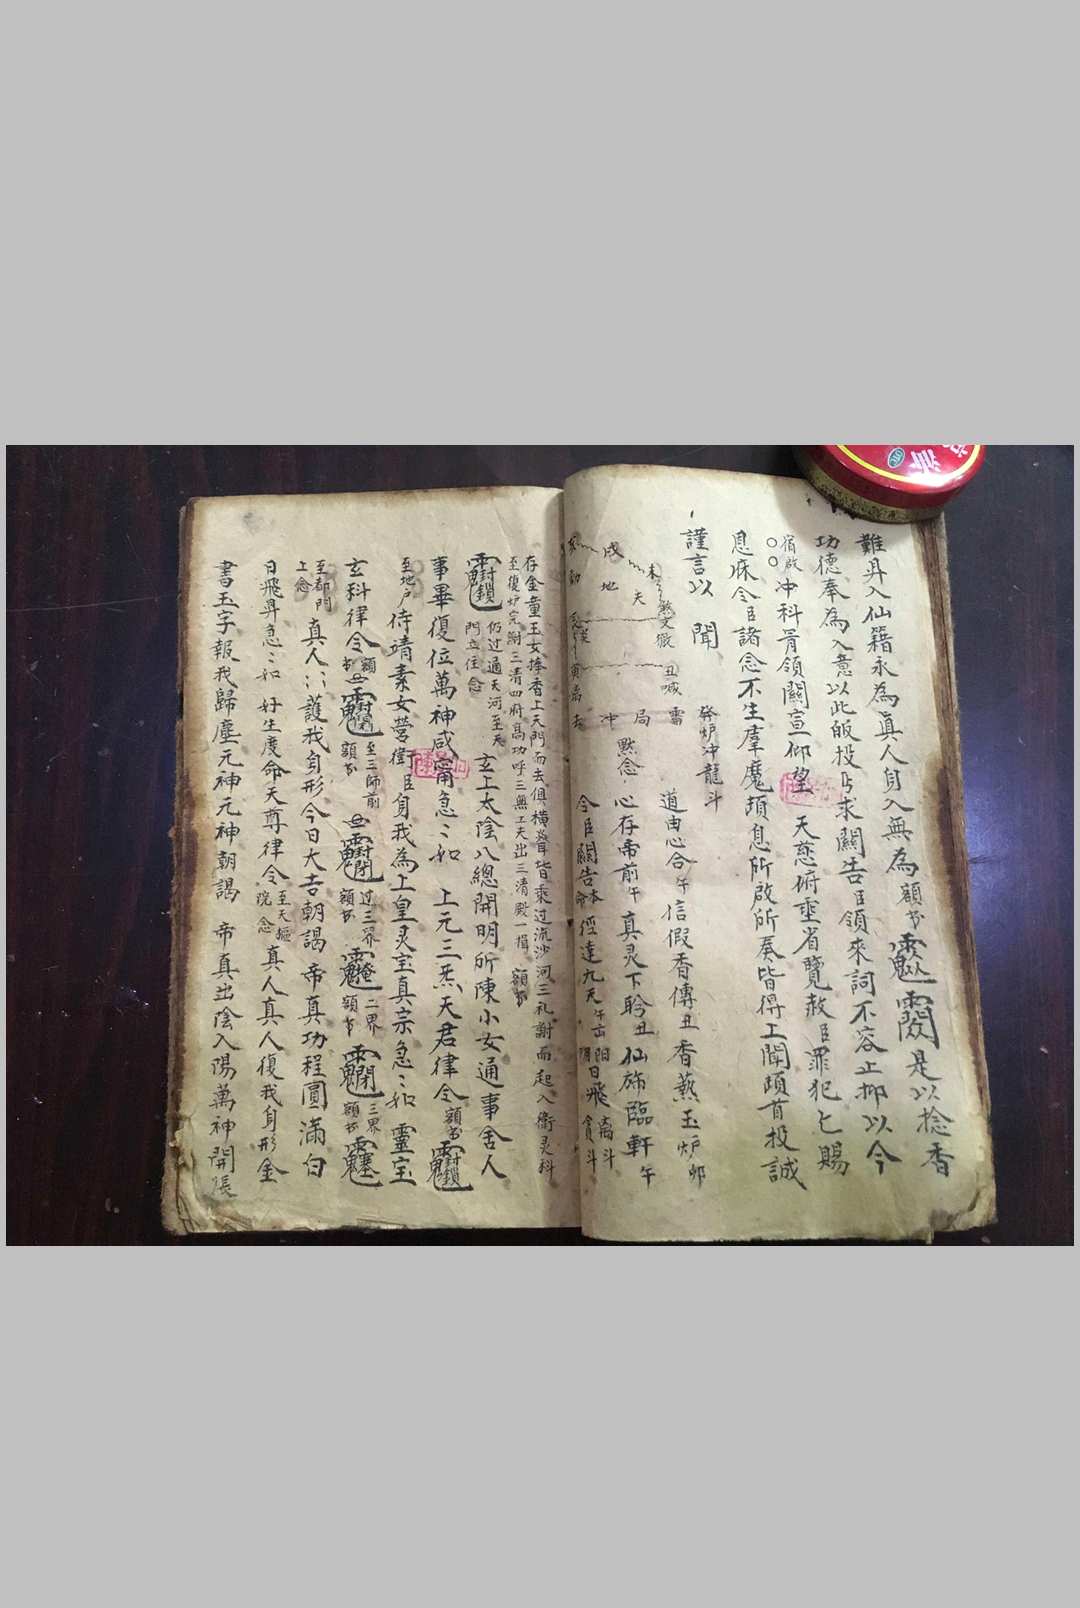 難昇入仙籍永為真人身入無為額書是以捻香
功德奉為入意以此皈投臣求關告臣領來詞不容止抑以今
宿啟
冲科胥領關宣仰望天慈俯垂省覽赦臣罪犯乞賜
恩庥令臣諸念不生羣魔頓息所啟所奏皆得上聞頓首投誠
謹言以聞
發炉冲龍斗
道由心合午信假香傳丑香爇玉炉卯
默念心存帝前午真灵下盼丑仙旆臨軒午
令臣關告本命徑達九天午
日飛
离斗
貪斗
戌
地
夫
未
丑喊雷
冲
局
存金童玉女捧香上天門而去俱橫聳皆乘过流沙河三礼謝而起入衛灵科
至復炉完謝三清四府高功呼三無上夫出三清殿一揖額書
仍过通天河至天
門立住念
玄上太陰八總開明所陳小女通事舍人
事畢復位萬神咸甯急〻如上元三炁天君律令額書
至地戸
侍靖素女營衛臣身我為上皇灵宝真宗急〻如靈宝
玄科律令額書
至三師前
額書
过三界
額書
二界
額書
三界
額書
至都門
上念
真人〻護我身形今日大吉朝謁帝真功程圓滿白
日飛昇急〻如好生度命天尊律令至天樞
院念
真人真人復我身形金
書玉字報我歸塵元神元神朝謁帝真出陰入陽萬神開張